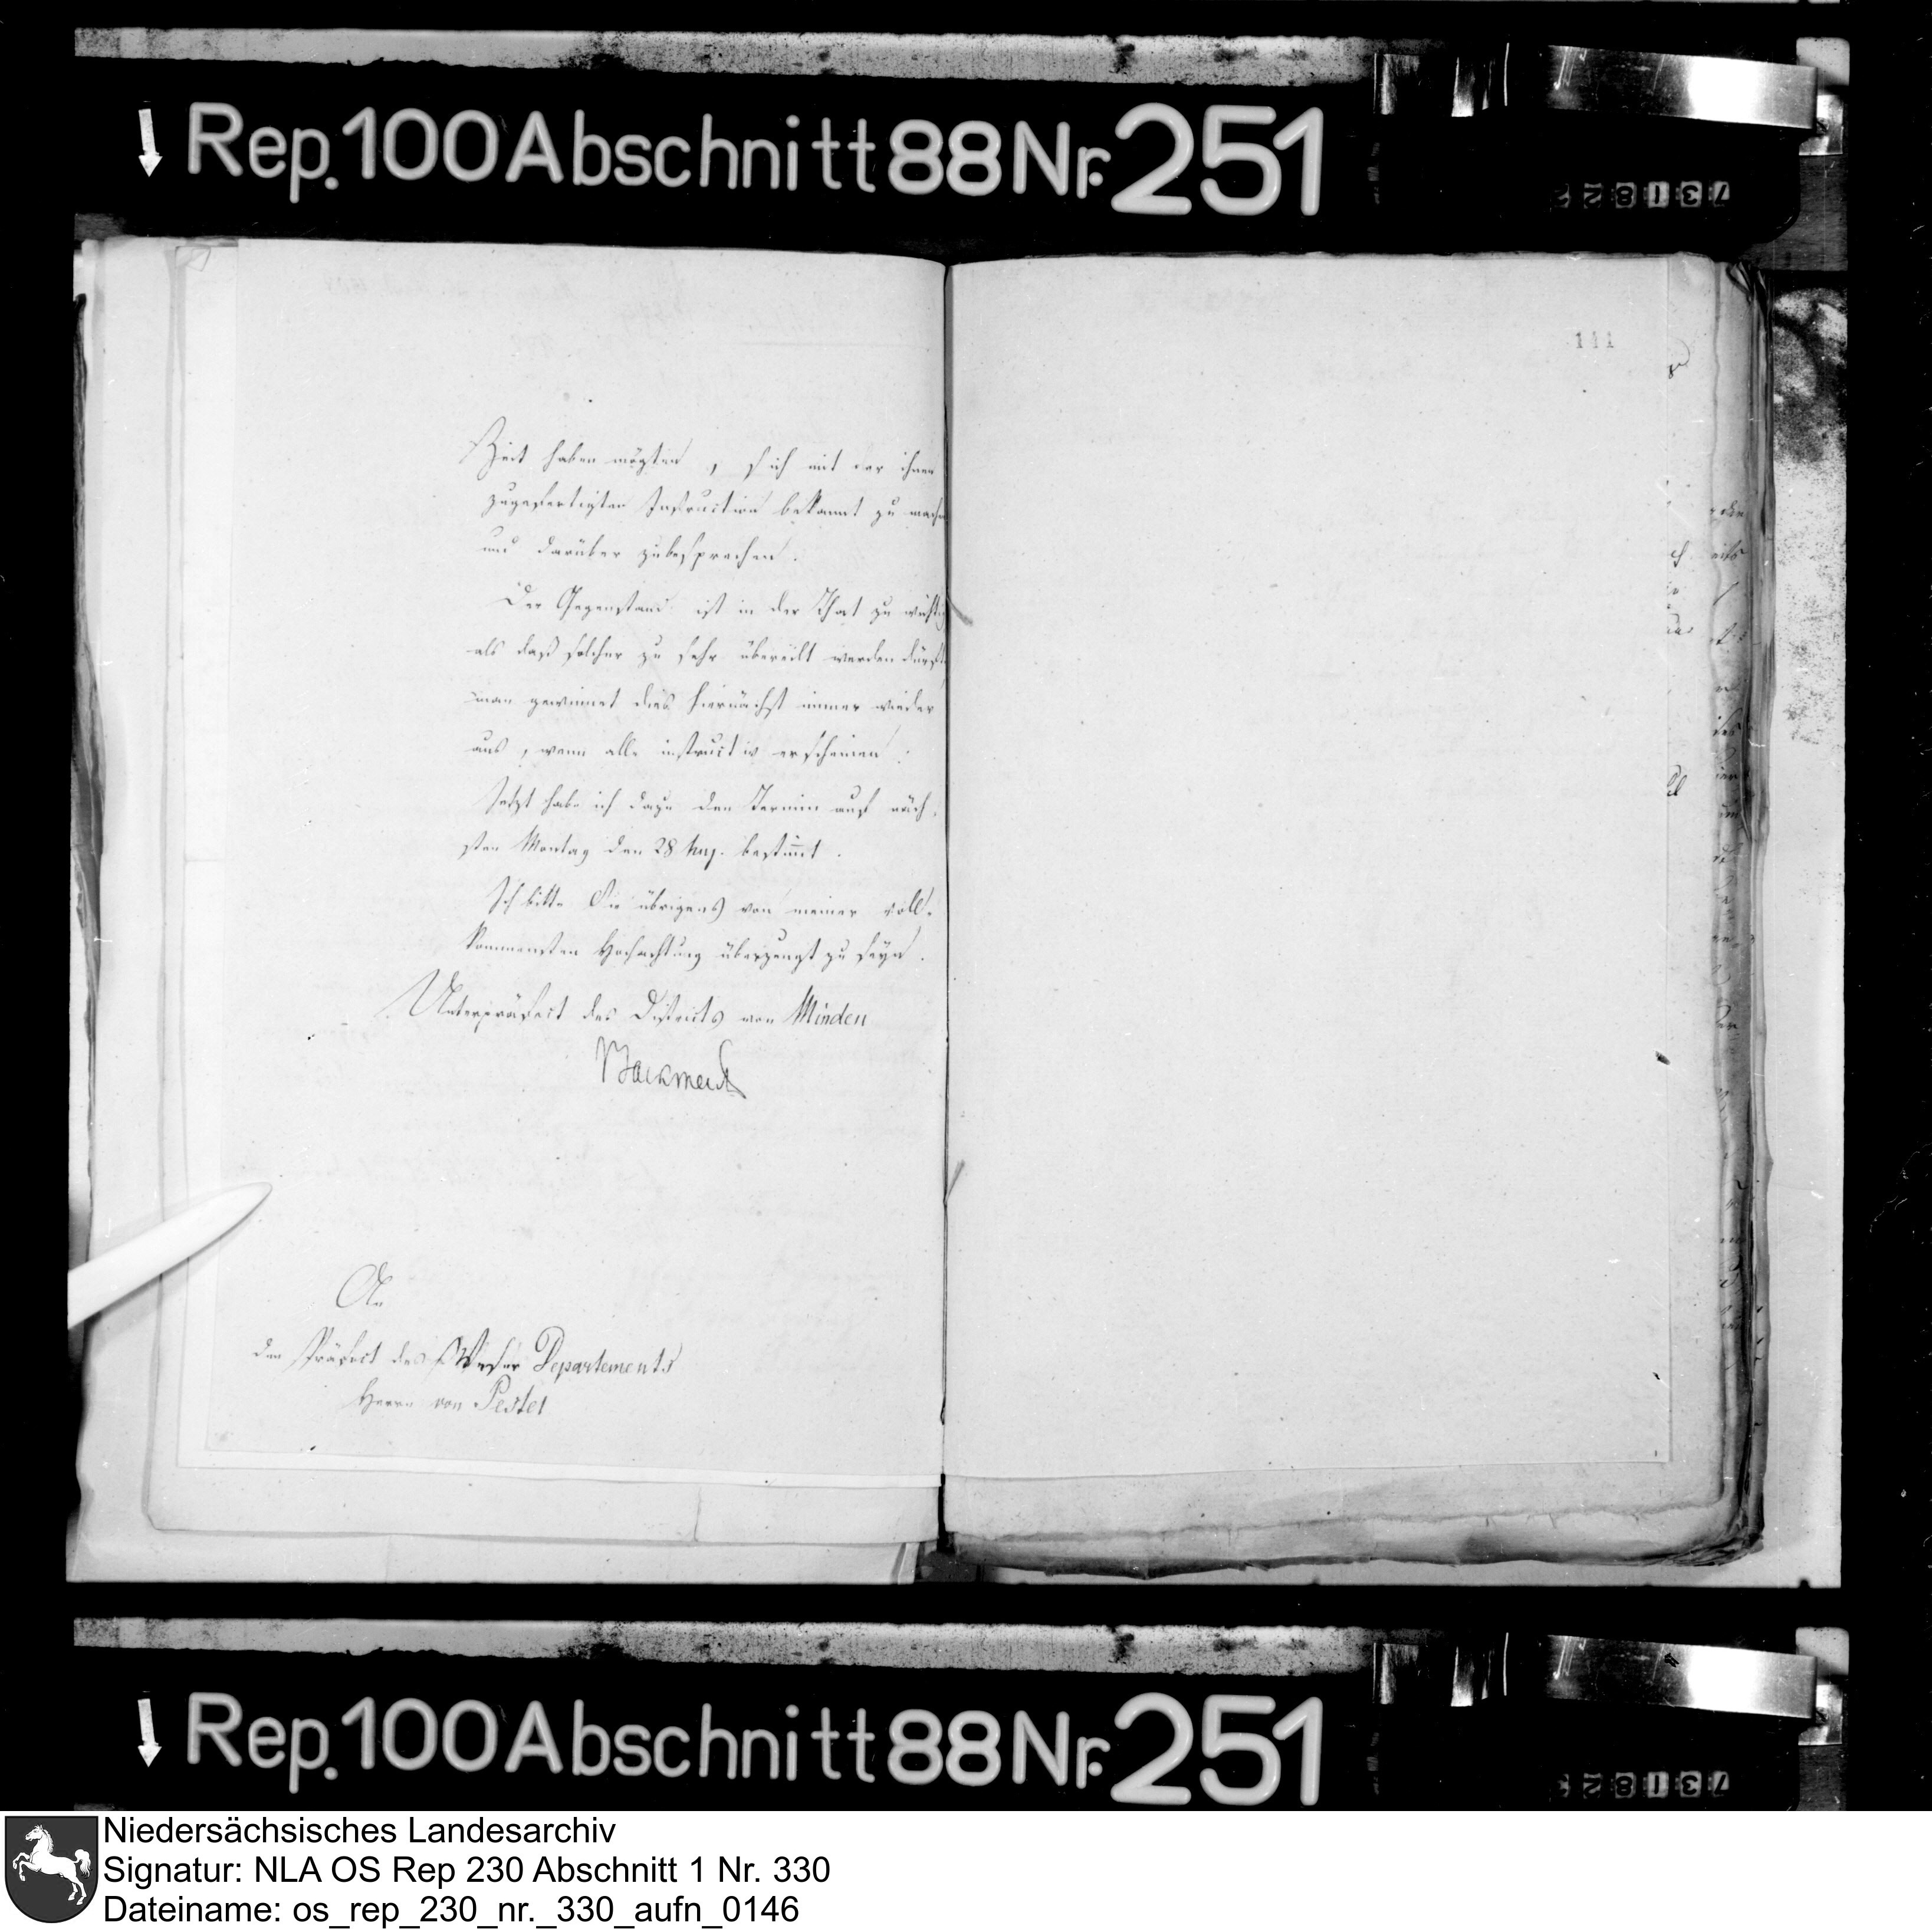 Rep. 100 Abschnitt 88 Nr. 251
731822
111
Zeit haben mögten, sich mit der ihnen
zugefertigten Instruction bekannt zu machen
und darüber zubesprechen.
Der Gegenstand ist in der That zu wichtig
als daß solcher zu sehr übereilt werden dürfte,
man gewinnet dies hiernächst immer wieder
aus, wenn alle instructiv erscheinen.
Jetzt habe ich dazu den Termin auf näch-
sten Montag den 28 huj. bestimt.
Ich bitte Sie übrigens von meiner voll-
kommensten Hochachtung überzeugt zu seyn.
Unterpräfect des Districts von Minden
An
den Präfect des Weser Departements
Herrn von Pestel
Rep. 100 Abschnitt 88 Nr. 251
Niedersächsisches Landesarchiv
Signatur: NLA OS Rep 230 Abschnitt 1 Nr. 330
Dateiname: os_rep_230_nr._330_aufn_0146